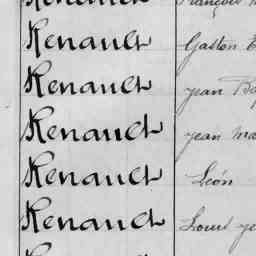 Renault François
Renault Gaston E
Renault Jean Ba
Renault Jean Ma
Renault Léon
Renault Louis Je